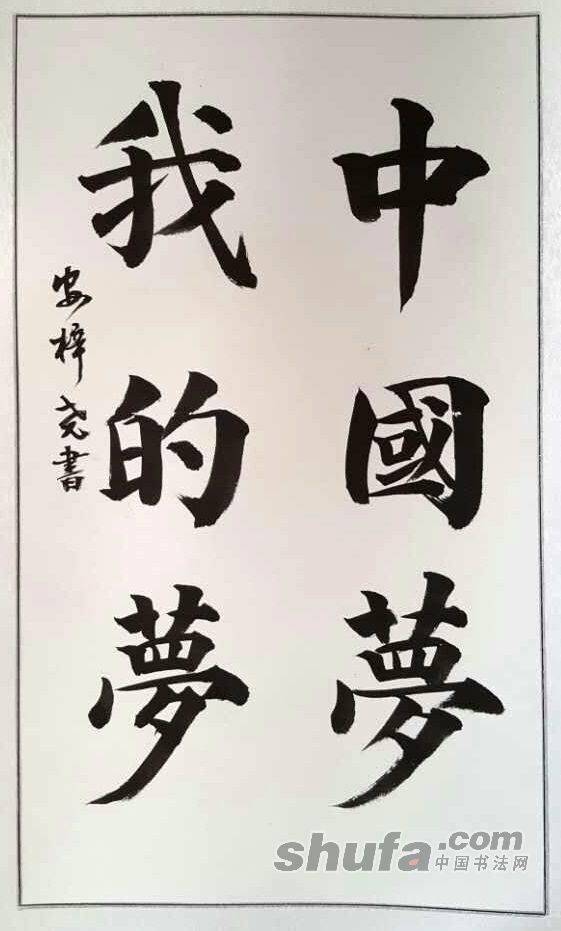 中國夢
我的夢
安梓尧書
shufa.com
中国书法网